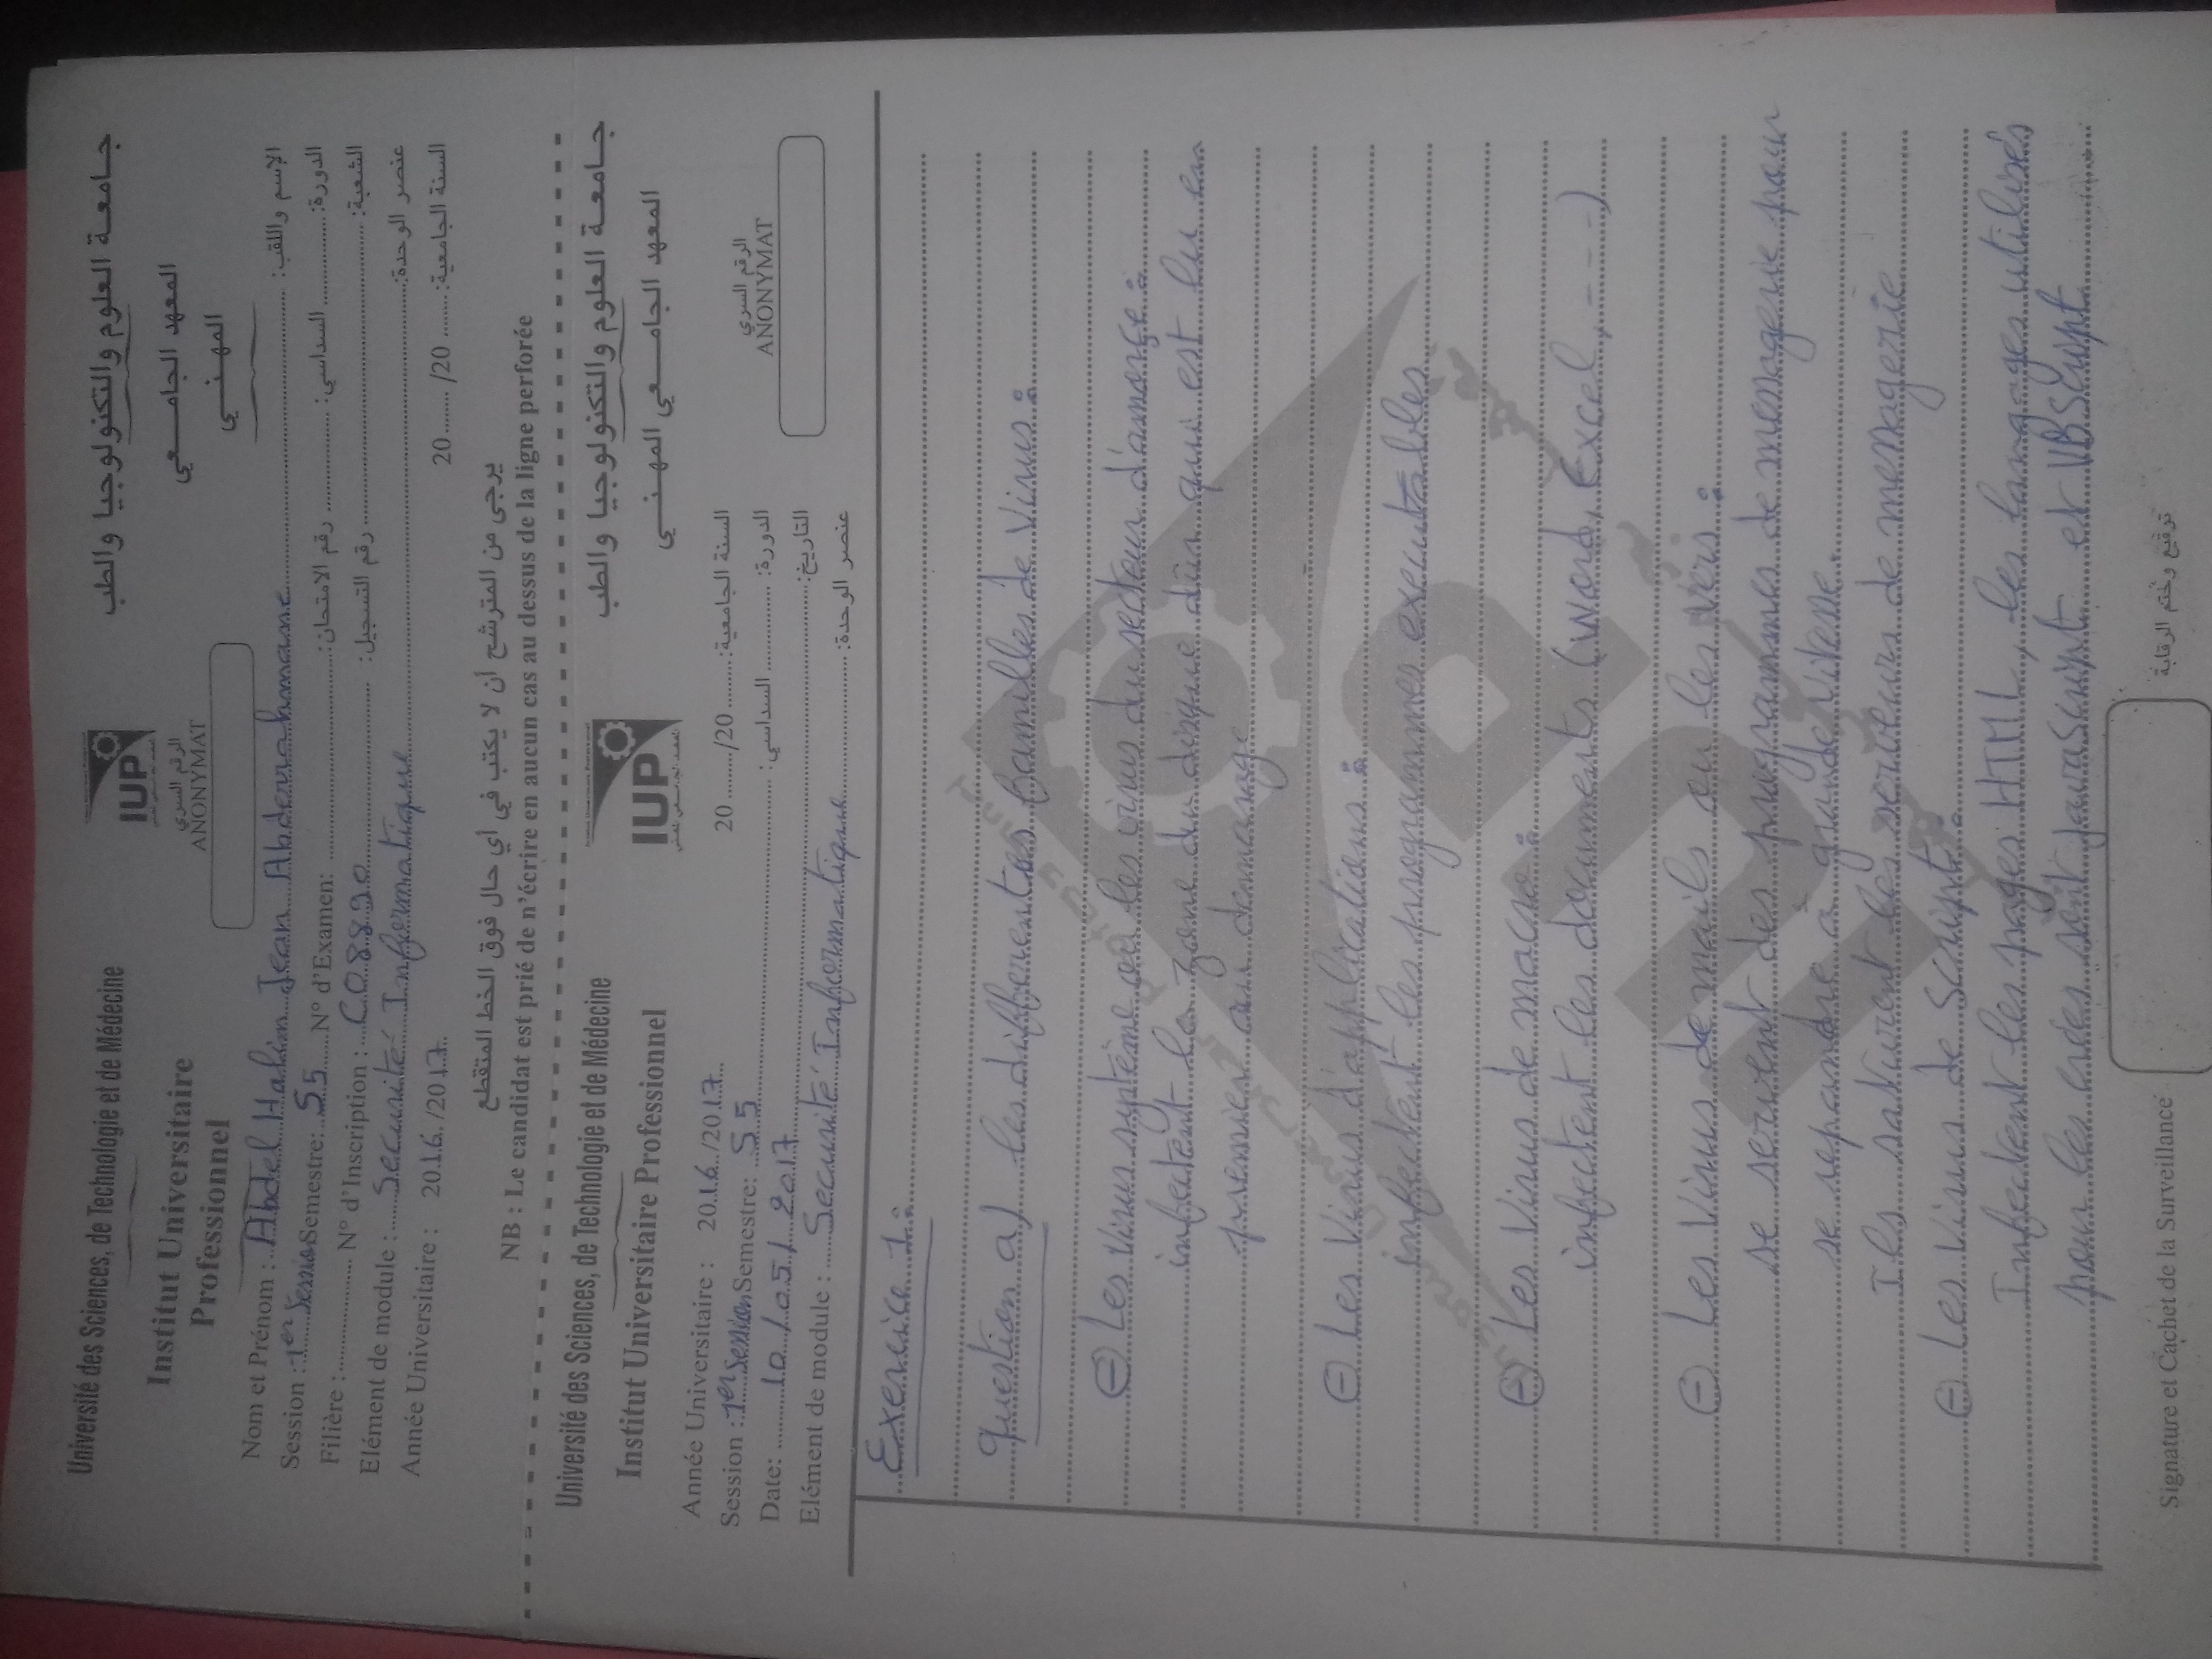 Université des Sciences, de Technologie et de Médecine
Institut Universitaire
Professionnel
IUP
الرقم السري
ANONYMAT
جامعة العلوم والتكنولوجيا والطب
المعهد الجامعي
المهني
Nom et Prénom : Abdel Halim Jean Abderrahmane الإسم واللقب:
Session : 1er Session Semestre: S5 N° d'Examen: رقم الامتحان: السداسي: الدورة:
Filière : N° d'Inscription : C08890 رقم التسجيل: الشعبة:
Elément de module : Securité Informatique عنصر الوحدة:
Année Universitaire : 2016/2017 السنة الجامعية: 20 /20
يرجى من المترشح أن لا يكتب في أي حال فوق الخط المتقطع
NB : Le candidat est prié de n'écrire en aucun cas au dessus de la ligne perforée
Université des Sciences, de Technologie et de Médecine
Institut Universitaire Professionnel
Institut Universitaire Professionnel
IUP
المعهد الجامعي المهني
جامعة العلوم والتكنولوجيا والطب
المعهد الجامعي المهني
Année Universitaire : 2016/2017 السنة الجامعية: 20 /20
Session : 1er Session Semestre: S5 السداسي: الدورة:
Date: 10/05/2017 التاريخ:
Elément de module : Securité Informatique عنصر الوحدة:
الرقم السري
ANONYMAT
Exercice 1:
question a) les differentes familles de Virus :
Les Virus système ou les virus du secteur d'amorçe :
infectent la zone du disque dûr qui est lu en
premier au demarage
Les Virus d'applications :
infectent les programmes executables
Les Virus de macro :
infectent les documents (Word, Excel, ----)
Les Virus de mails ou les vers :
se servent des programmes de messagerie pour
se repandre à grande vitesse.
Ils saturent les serveurs de messagerie
Les Virus de Script :
Infectent les pages HTML, les langages utilisés
pour les crées sont JavaScript et VBScript
IUP
Signature et Cachet de la Surveillance
توقيع وختم الرقابة